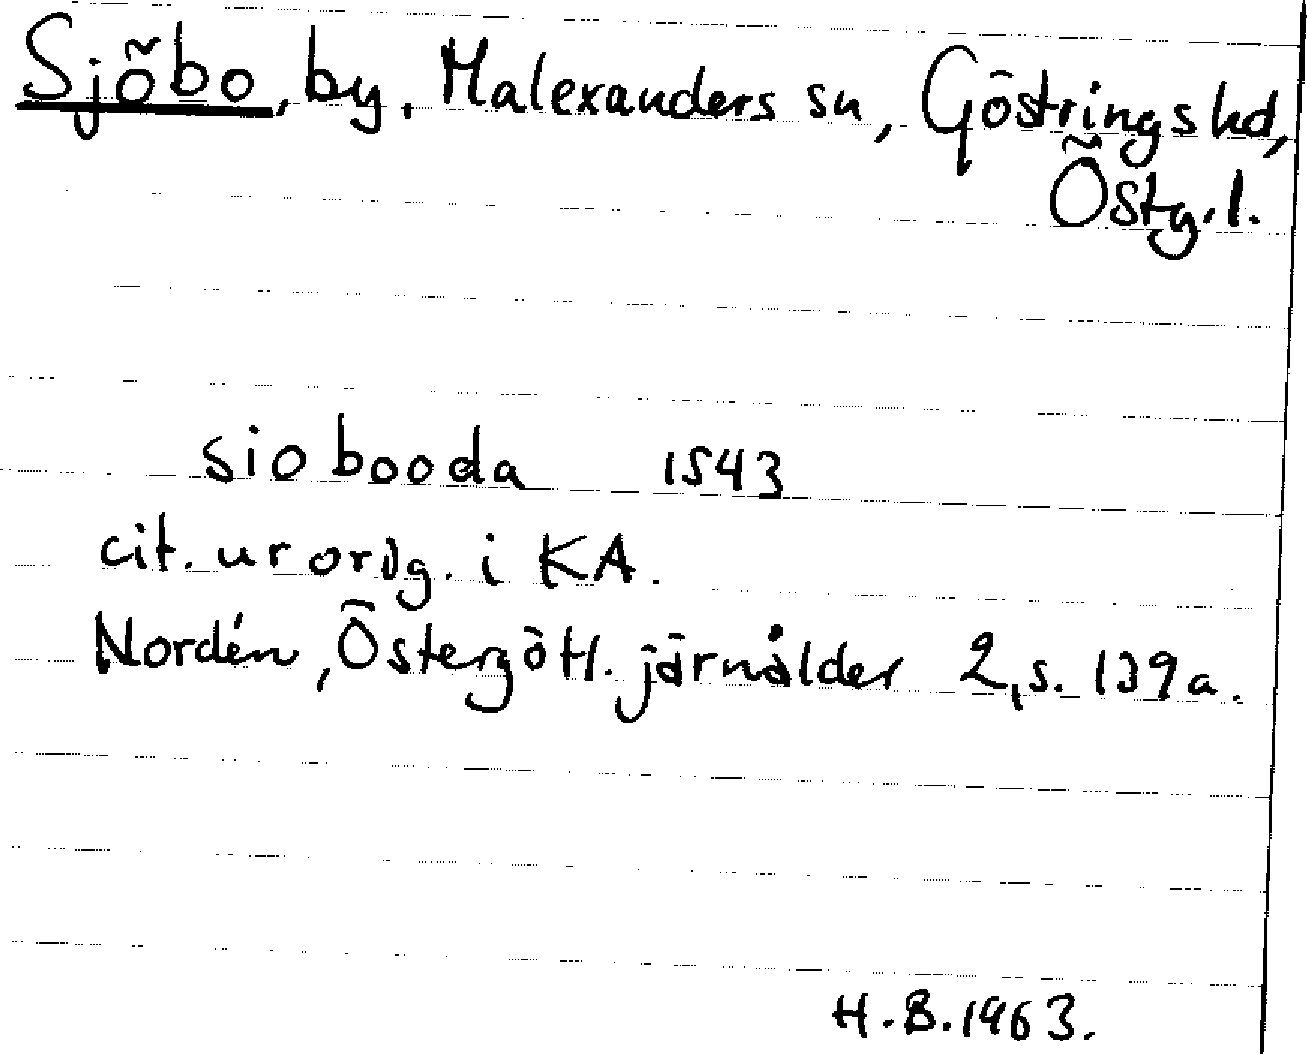 Sjöbo, by, Malexanders sn, Göstrings hd,
Östg.l.
sio booda 1543
cit. ur ordg. i KA.
Nordén, Östergötl. järnålder 2, s. 139a.
H.B. 1963.